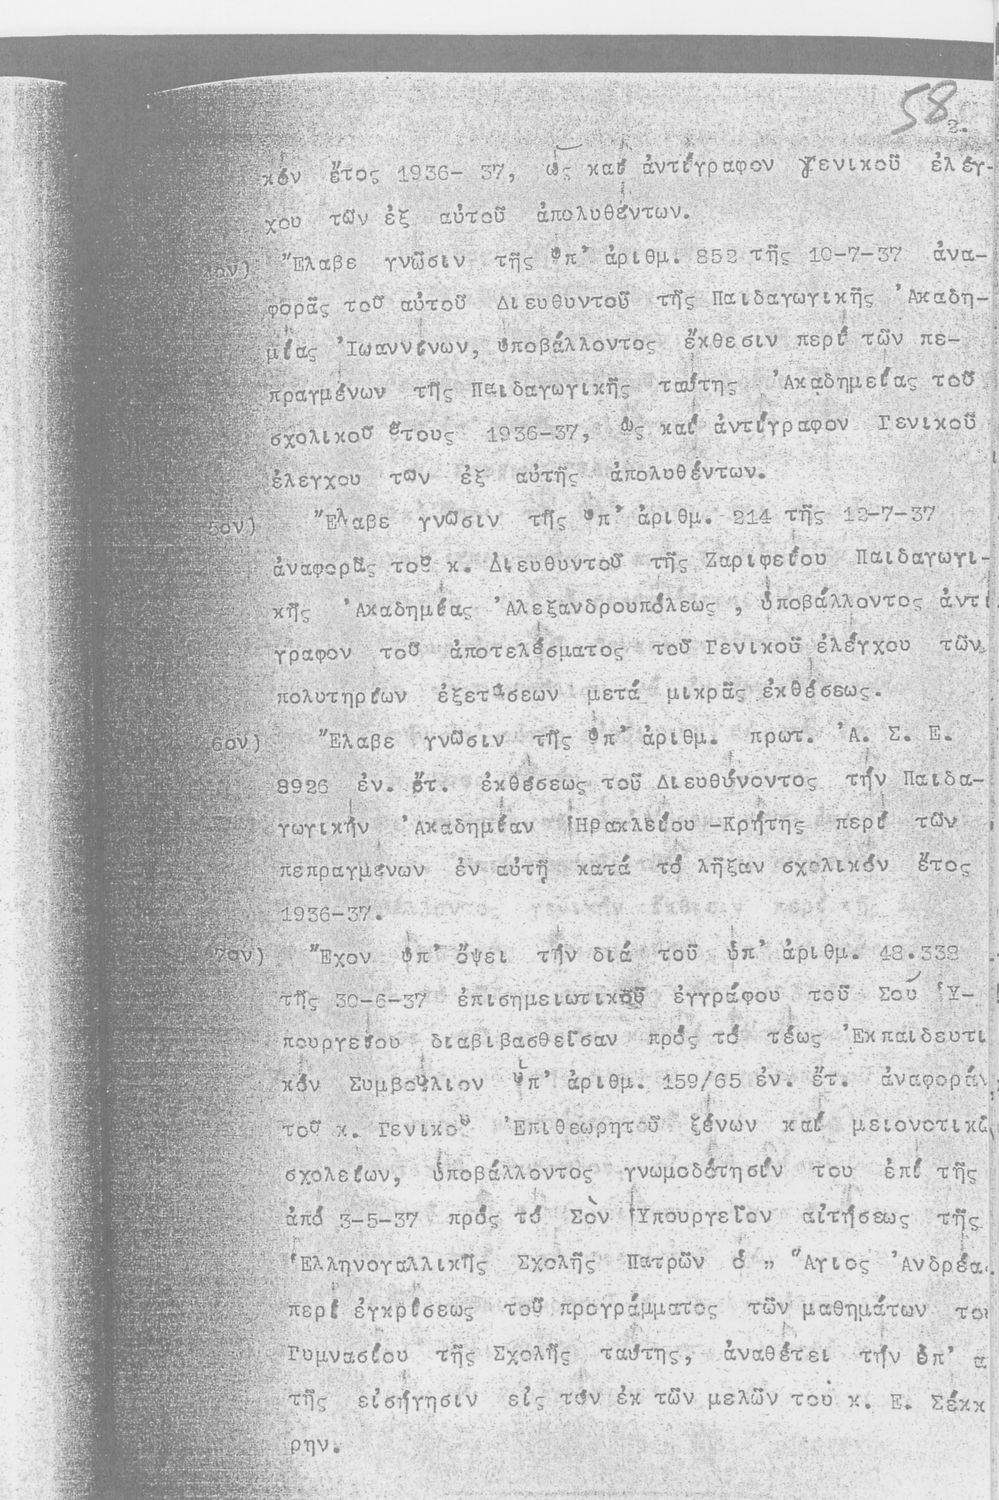 58
2.
κόν ἔτος 1936- 37, ὡς καί ἀντίγραφον Γενικοῦ ἐλέγ-
χου τῶν ἐξ αὐτοῦ ἀπολυθέντων.
4ον) Ἔλαβε γνῶσιν τῆς ὑπ' ἀριθμ. 852 τῆς 10-7-37 ἀνα-
φορᾶς τοῦ αὐτοῦ Διευθυντοῦ τῆς Παιδαγωγικῆς Ἀκαδη-
μίας Ἰωαννίνων, ὑποβάλλοντος ἔκθεσιν περί τῶν πε-
πραγμένων τῆς Παιδαγωγικῆς ταύτης Ἀκαδημείας τοῦ
σχολικοῦ ἔτους 1936-37, ὡς καί ἀντίγραφον Γενικοῦ
ἐλεγχου τῶν ἐξ αὐτῆς ἀπολυθέντων.
5ον) Ἔλαβε γνῶσιν τῆς ὑπ' ἀριθμ. 214 τῆς 12-7-37
ἀναφορᾶς τοῦ κ. Διευθυντοῦ τῆς Ζαριφείου Παιδαγωγι-
κῆς Ἀκαδημίας Ἀλεξανδρουπόλεως, ὑποβάλλοντος ἀντί
γραφον τοῦ ἀποτελέσματος τοῦ Γενικοῦ ἐλέγχου τῶν
πολυτηρίων ἐξετάσεων μετά μικρᾶς ἐκθέσεως.
6ον) Ἔλαβε γνῶσιν τῆς ὑπ' ἀριθμ. πρωτ. Ἀ. Σ. Ε.
8926 ἐν. ἔτ. ἐκθέσεως τοῦ Διευθύνοντος τήν Παιδα-
γωγικήν Ἀκαδημίαν Ἡρακλείου-Κρήτης περί τῶν
πεπραγμένων ἐν αὐτῇ κατά τό λῆξαν σχολικόν ἔτος
1936-37.
7ον) Ἔχον ὑπ' ὄψει τήν διά τοῦ ὑπ' ἀριθμ. 48.338
τῆς 30-6-37 ἐπισημειωτικοῦ ἐγγράφου τοῦ Σοῦ Ὑ-
πουργείου διαβιβασθεῖσαν πρός τό τέως Ἐκπαιδευτι
κόν Συμβούλιον ὑπ' ἀριθμ. 159/65 ἐν. ἔτ. ἀναφοράν
τοῦ κ. Γενικοῦ Ἐπιθεωρητοῦ ξένων καί μειονοτικῶ
σχολείων, ὑποβάλλοντος γνωμοδότησίν του ἐπί τῆς
ἀπό 3-5-37 πρός τό Σὸν Ὑπουργεῖον αἰτήσεως τῆς
Ἑλληνογαλλικῆς Σχολῆς Πατρῶν ὁ " Ἅγιος Ἀνδρέα
περί ἐγκρίσεως τοῦ προγράμματος τῶν μαθημάτων το
Γυμνασίου τῆς Σχολῆς ταύτης, ἀναθέτει τήν ἐπ' α
τῆς εἰσήγησιν εἰς τόν ἐκ τῶν μελῶν του κ. Ε. Σέκκ
ρην.